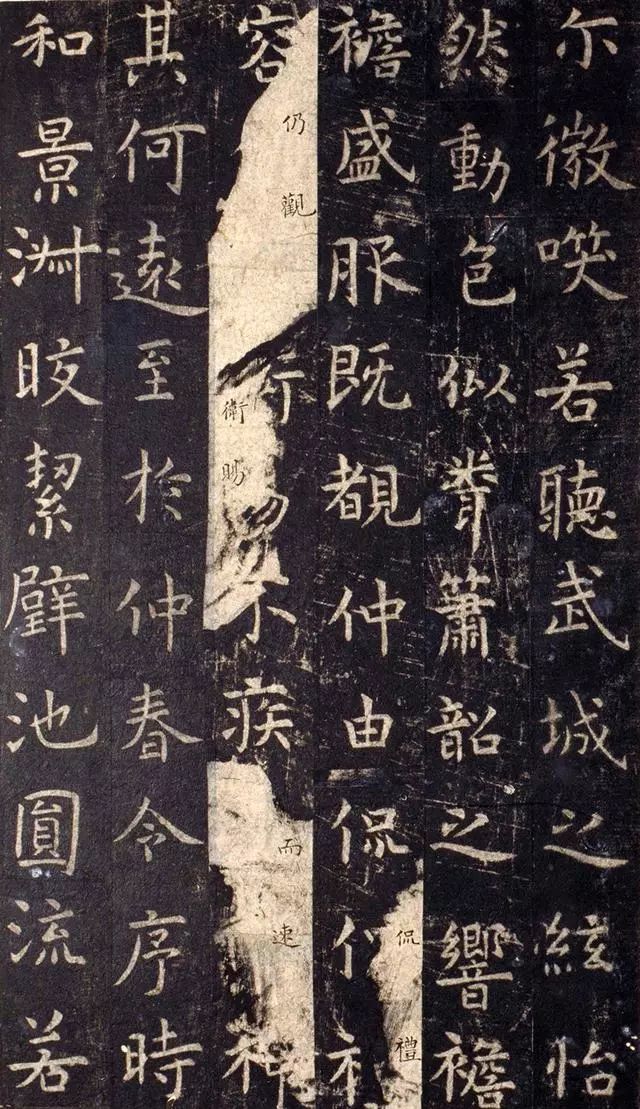 尔微㗛若聽武城之絃怡
然動色似聞簫韶之響襜
襜盛服既覩仲由侃侃禮
容仍觀衛賜不疾而速神
其何遠至於仲春令序時
和景淑晈絜璧池圎流若